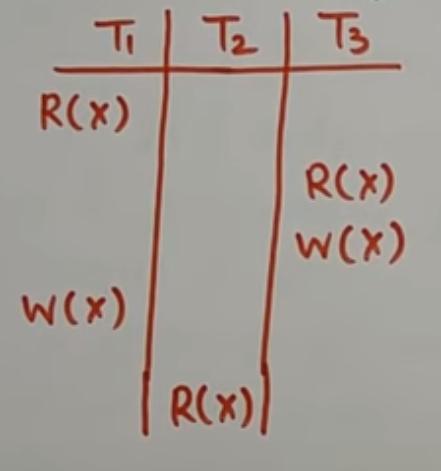 T1 T2 T3
R(X)
R(X)
W(X)
W(X)
R(X)